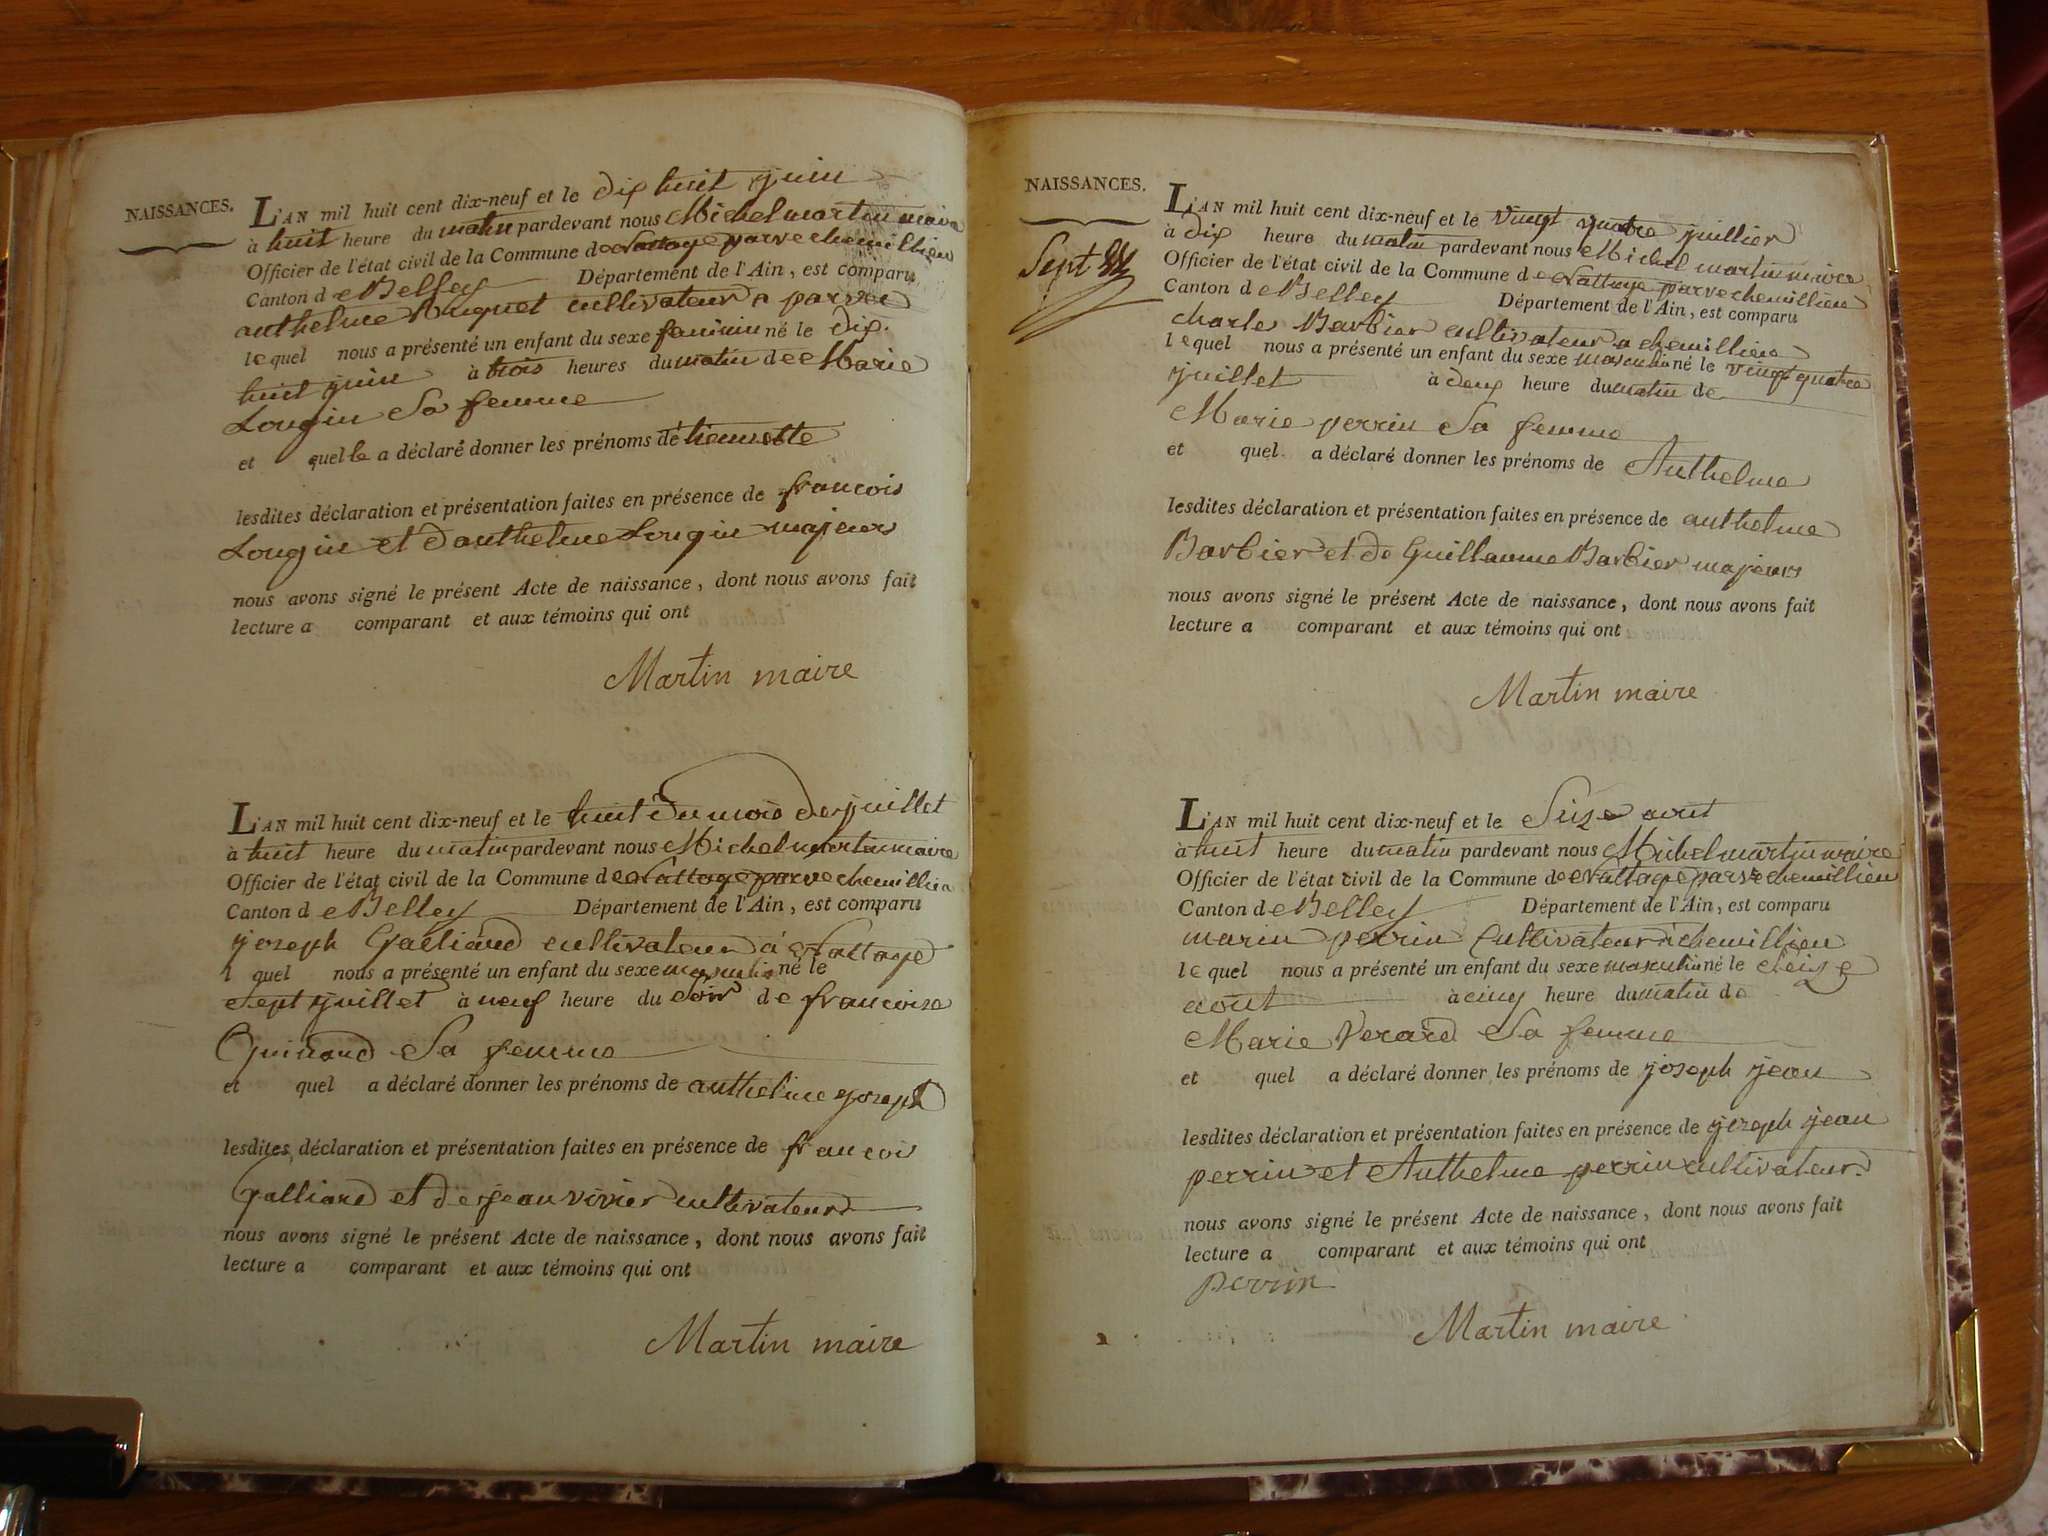 NAISSANCES.
L'AN mil huit cent dix-neuf et le dix huit juin
à huit heure du matin pardevant nous Michel martin maire
Officier de l'état civil de la Commune de Nattage parve chemillieu
Canton de Belley Département de l'Ain, est comparu
anthelme cultivateur a parve
lequel nous a présenté un enfant du sexe feminin né le dix
huit juin à trois heures du matin de Marie
Longin Sa femme
et quelle a déclaré donner les prénoms de
lesdites déclaration et présentation faites en présence de francois
Longin et d'anthelme Longin majeurs
nous avons signé le présent Acte de naissance, dont nous avons fait
lecture a comparant et aux témoins qui ont
Martin maire
L'AN mil huit cent dix-neuf et le huit du mois de juillet
à huit heure du matin pardevant nous Michel martin maire
Officier de l'état civil de la Commune de Nattage parve chemillieu
Canton de Belley Département de l'Ain, est comparu
joseph Galliand cultivateur à Nattage
l quel nous a présenté un enfant du sexe masculin né le
Sept juillet à neuf heure du Soir de francoise
Quinand Sa femme
et quel a déclaré donner les prénoms de anthelme joseph
lesdites déclaration et présentation faites en présence de francois
Galliand et de jean vivier cultivateurs
nous avons signé le présent Acte de naissance, dont nous avons fait
lecture a comparant et aux témoins qui ont
Martin maire
NAISSANCES.
Sept
L'AN mil huit cent dix-neuf et le vingt quatre juillier
à dix heure du matin pardevant nous Michel martin maire
Officier de l'état civil de la Commune de Nattage parve chemillieu
Canton de Belley Département de l'Ain, est comparu
charle Barbier cultivateur a chemillieu
lequel nous a présenté un enfant du sexe masculin né le vingt quatre
juillet à deux heure du matin de
Marie perrin Sa femme
et quel a déclaré donner les prénoms de Anthelme
lesdites déclaration et présentation faites en présence de anthelme
Barbier et de Guillaume Barbier majeurs
nous avons signé le présent Acte de naissance, dont nous avons fait
lecture a comparant et aux témoins qui ont
Martin maire
L'AN mil huit cent dix-neuf et le Seize aout
à huit heure du matin pardevant nous Michel martin maire
Officier de l'état civil de la Commune de Nattage parve chemillieu
Canton de Belley Département de l'Ain, est comparu
marin perrin Cultivateur à chemillieu
lequel nous a présenté un enfant du sexe masculin né le
aout à cinq heure du matin de
Marie Verard Sa femme
et quel a déclaré donner les prénoms de joseph jean
lesdites déclaration et présentation faites en présence de joseph jean
perrin et Anthelme perrin cultivateurs
nous avons signé le présent Acte de naissance, dont nous avons fait
lecture a comparant et aux témoins qui ont
perrin
Martin maire